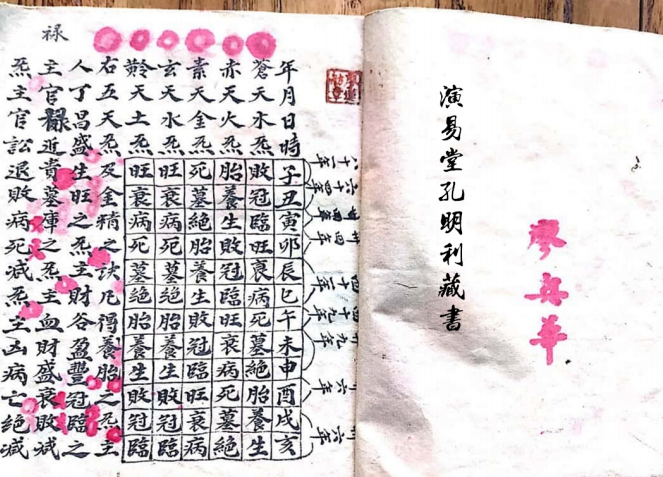 演易堂孔明利藏書
廖華
年月日時子丑寅卯辰巳午未申酉戌亥
蒼天水炁敗冠臨旺衰病死墓絕胎養生
赤天火炁胎養生敗冠臨旺衰病死墓絕
素天金炁死墓絕胎養生敗冠臨旺衰病
玄天水炁旺衰病死墓絕胎養生敗冠臨
黅天土炁旺衰病死墓絕胎養生敗冠臨
右五天炁及金精之訣凡得養胎之炁主
人丁昌盛生旺之炁主財谷盈豐冠臨之
祿
主官祿近貴墓庫之炁主血財盛衰敗減
炁主官訟退敗病死減炁主凶病亡絕減
八十一年
六十四年
廿四年
四十二年
四十九年